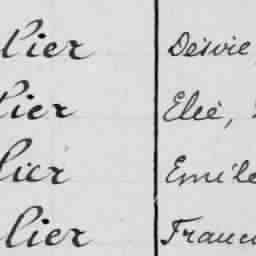 lier Désiré,
lier Elie,
lier Emile
lier Franc